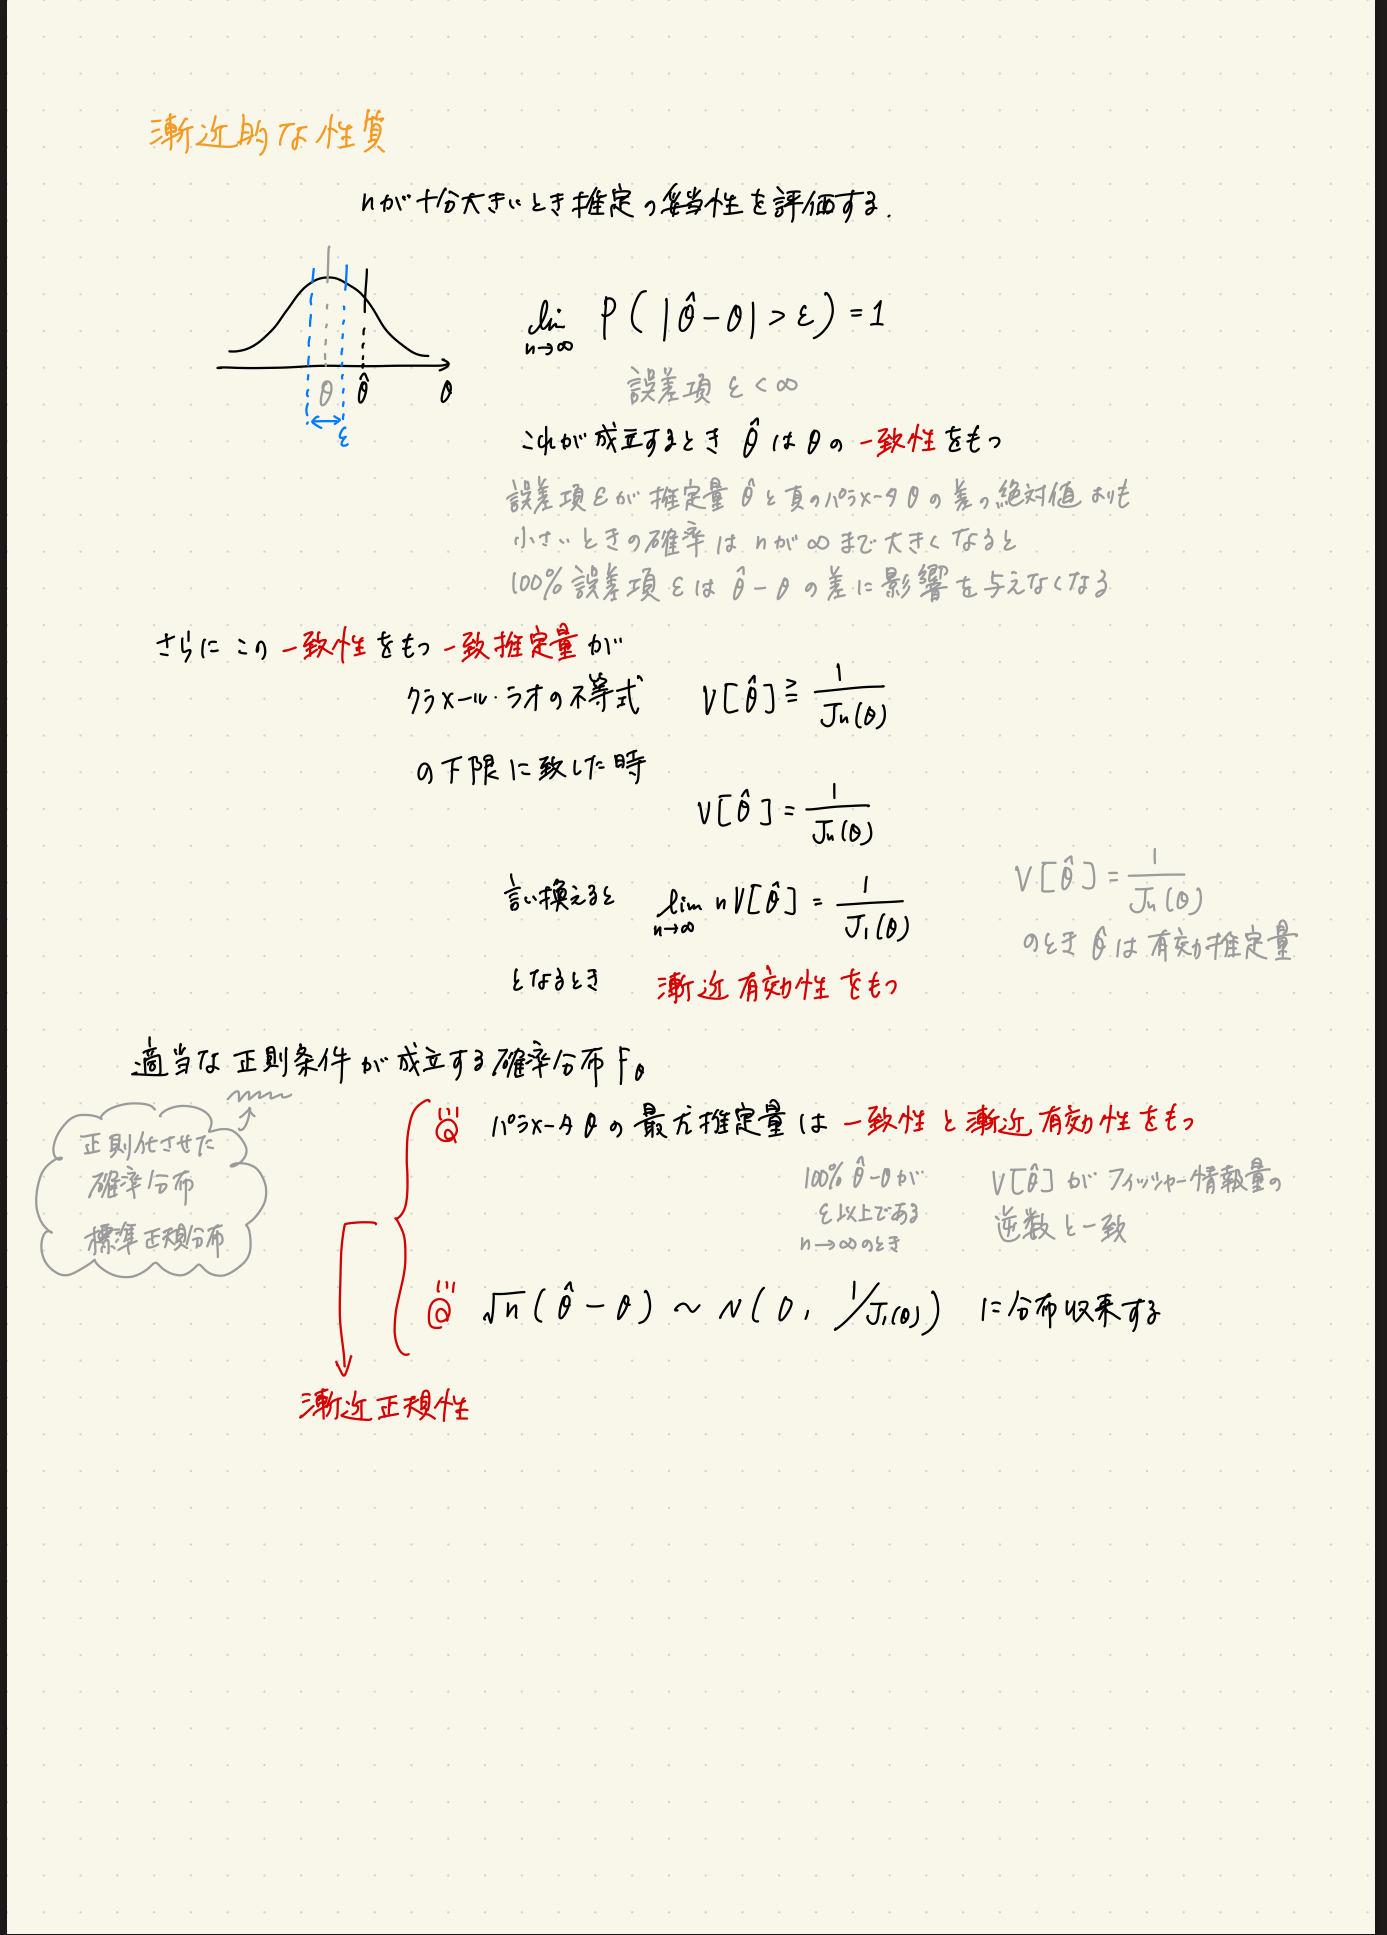 漸近的な性質
nが十分大きいとき推定の妥当性を評価する.
lim n→∞ P(|θ̂-θ|>ε)=1
誤差項 ε<∞
θ θ̂ θ
ε
これが成立するとき θ̂はθの一致性をもつ
誤差項εが推定量θ̂と真のパラメータθの差の絶対値よりも
小さいときの確率はnが∞まで大きくなると
100%誤差項εはθ̂-θの差に影響を与えなくなる
さらにこの一致性をもつ一致推定量が
クラメール・ラオの不等式 V[θ̂]≧1/Jn(θ)
の下限に致した時
V[θ̂]=1/Jn(θ)
言い換えると lim n→∞ nV[θ̂]=1/J1(θ)
V[θ̂]=1/Jn(θ)
のときθ̂は有効推定量
となるとき 漸近有効性をもつ
適当な正則条件が成立する確率分布Fθ
正則化させた
確率分布
標準正規分布
パラメータθの最尤推定量は一致性と漸近有効性をもつ
100% θ̂-θが
ε以上である
n→∞のとき
V[θ̂]がフィッシャー情報量の
逆数と一致
√n(θ̂-θ)~N(0, 1/J1(θ)) に分布収束する
漸近正規性